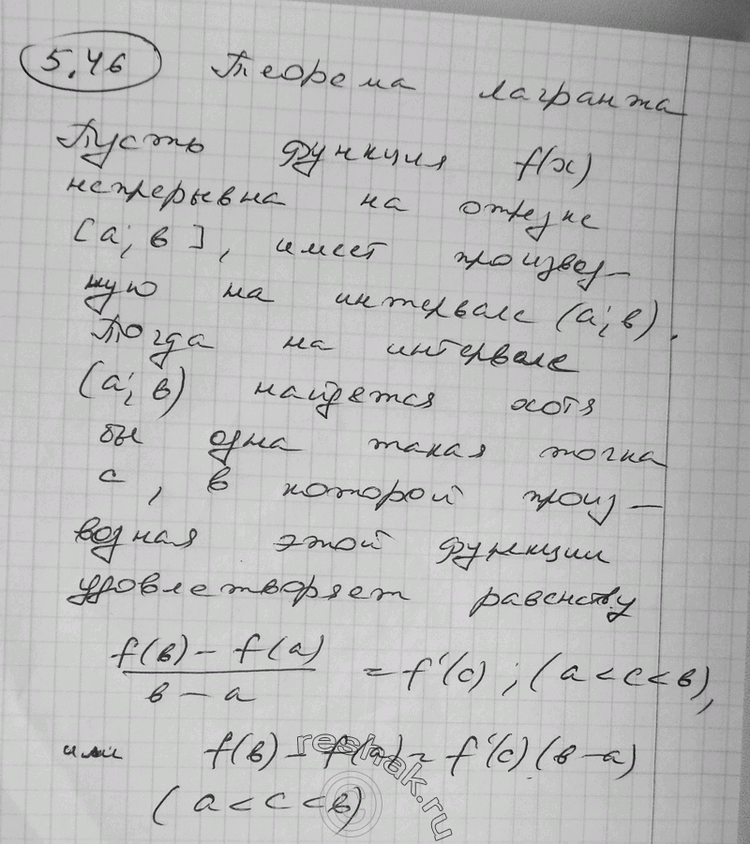 5.46 Теорема Лагранжа
Пусть функция f(x)
непрерывна на отрезке
[а; в], имеет производ-
ную на интервале (а; в).
Тогда на интервале
(а; в) найдется хотя
бы одна такая точка
с, в которой произ-
водная этой функции
удовлетворяет равенству
f(в) - f(а) / в - а = f'(с); (а < с < в),
или f(в) - f(а) = f'(с) (в - а)
(а < с < в)
reshak.ru